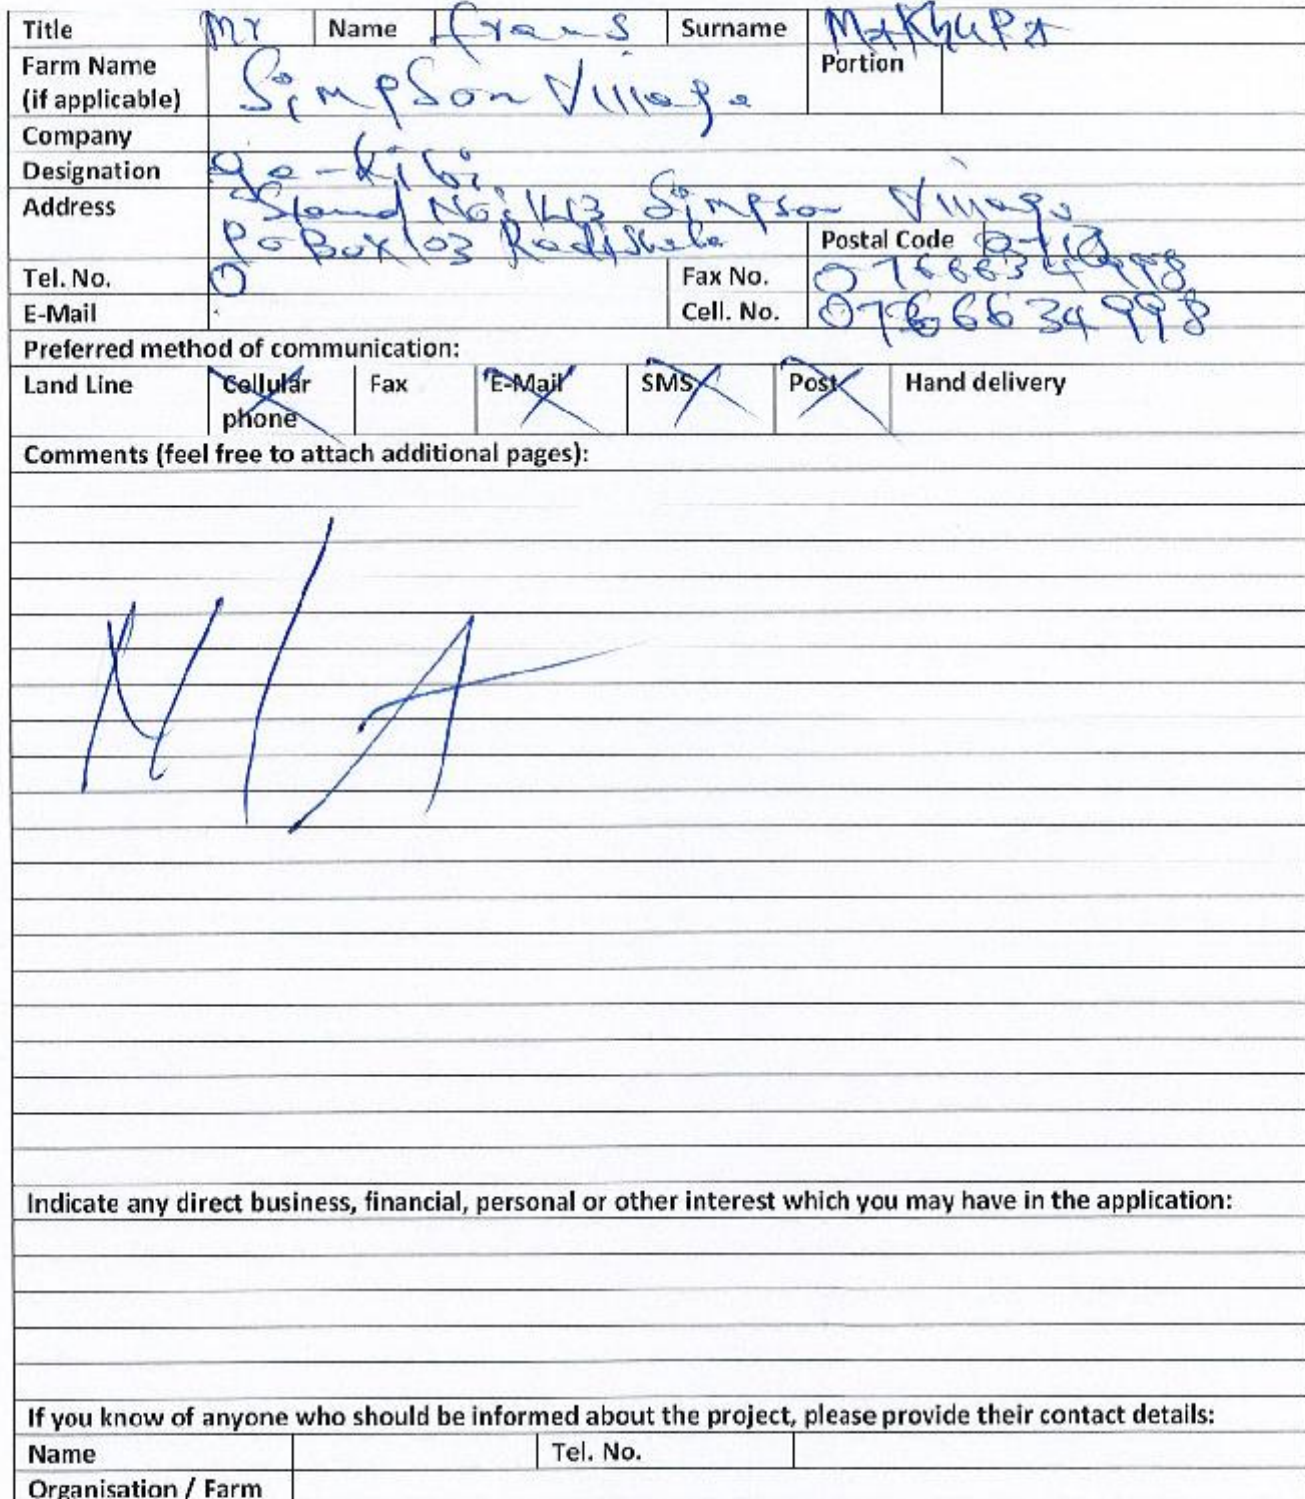 Title Mr Name frans Surname Makhupa
Farm Name (if applicable) Simpson Village Portion
Company
Designation ga-kibi
Address Stand No: 143 Simpson Village
Po Box 103 Radishaba Postal Code
Tel. No. 0 Fax No. 0766634998
E-Mail Cell. No. 0766634998
Preferred method of communication:
Land Line Cellular phone Fax E-Mail SMS Post Hand delivery
Comments (feel free to attach additional pages):
N/A
Indicate any direct business, financial, personal or other interest which you may have in the application:
If you know of anyone who should be informed about the project, please provide their contact details:
Name Tel. No.
Organisation / Farm